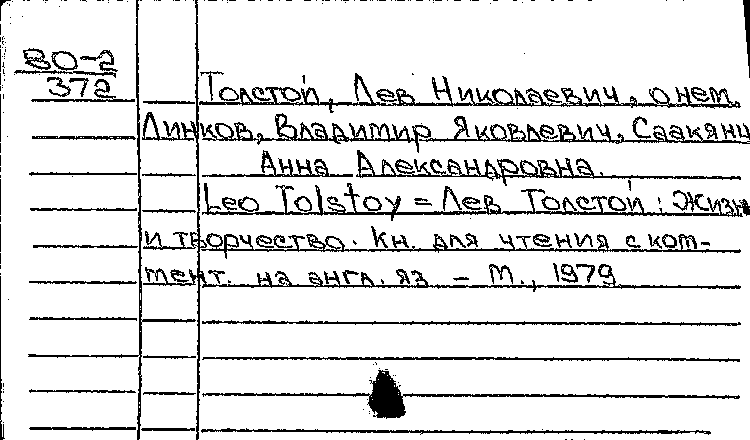 80-2
372
Толстой, Лев Николаевич, о нем.
Линков, Владимир Яковлевич, Саакянц
Анна Александровна.
Leo Tolstoy = Лев Толстой : Жизнь
и творчество. Кн. для чтения с ком-
мент. на англ. яз - М., 1979